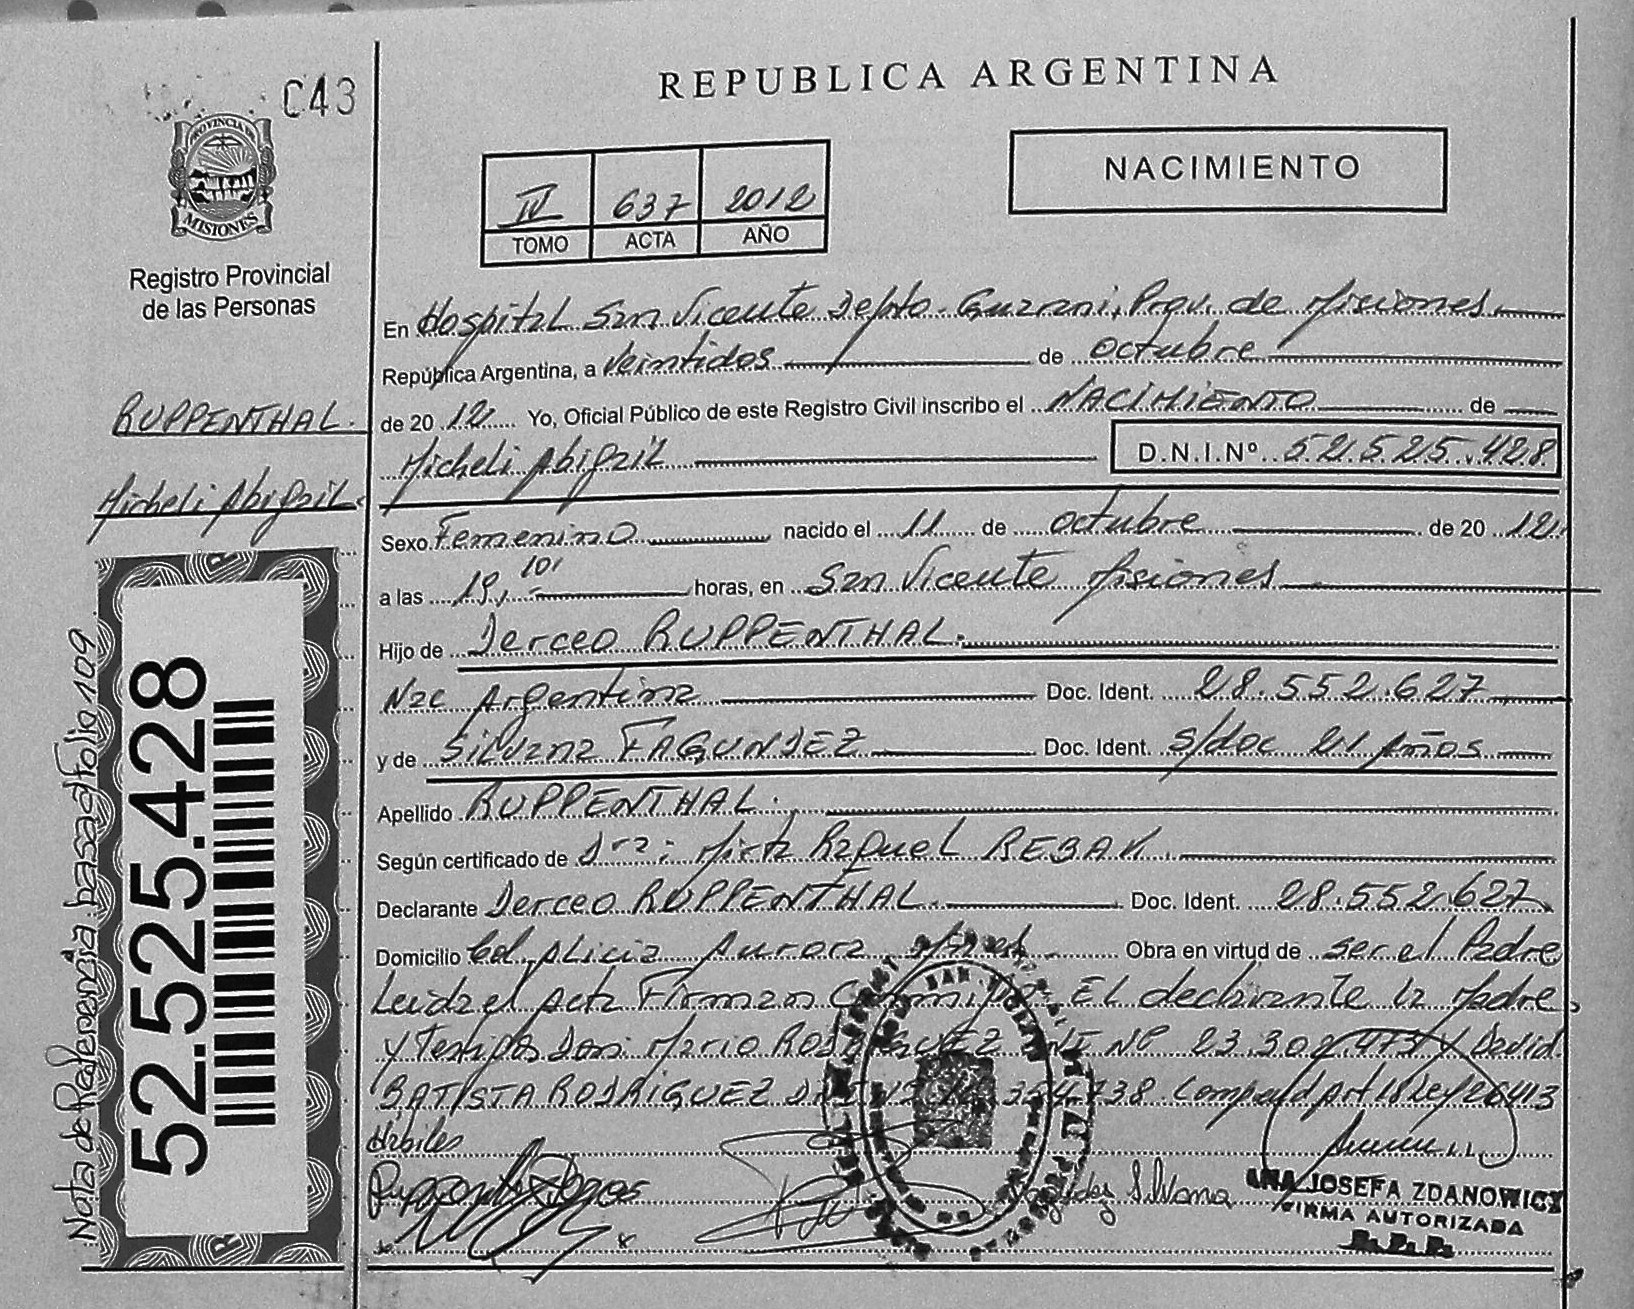 C43
REPUBLICA ARGENTINA
PROVINCIA DE
MISIONES
Registro Provincial
de las Personas
IV 637 2012
TOMO ACTA AÑO
NACIMIENTO
En Hospital San Vicente Depto. Guarani, Prov. de Misiones
República Argentina, a veintidos de octubre
de 2012 Yo, Oficial Público de este Registro Civil inscribo el NACIMIENTO de
RUPPENTHAL.
Micheli Abigail
Micheli Abigail D.N.I.Nº 52.525.428
Sexo Femenino nacido el 11 de octubre de 2012
a las 19,10' horas, en San Vicente Misiones
Hijo de Derceo RUPPENTHAL.
Nac Argentina Doc. Ident. 28.552.627
y de Silvana FAGUNDEZ Doc. Ident. s/doc 21 Años
Apellido RUPPENTHAL.
Según certificado de Dra: Mirta Raquel
Declarante Derceo RUPPENTHAL. Doc. Ident. 28.552.627
Domicilio Col. Alicia Aurora Obra en virtud de ser el Padre
Leida el Acta Firman El declarante la Madre
y Testigos Don: Mario RODRIGUEZ DNI Nº 23.302.473 y David
BATISTA RODRIGUEZ DNI Nº 354.738. Art 18 Ley 26413
Habiles
Silvana
ANA JOSEFA ZDANOWICZ
FIRMA AUTORIZADA
R.P.P.
Nota de Referencia: pasa al Folio 109
52.525.428